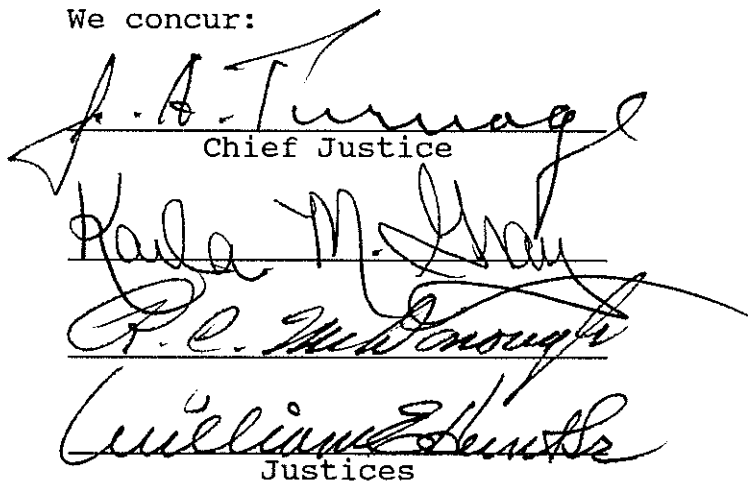 We concur:
J. A. Turnage
Chief Justice
Karla M. Gray
R. C. McDonough
William E Hunt Sr
Justices